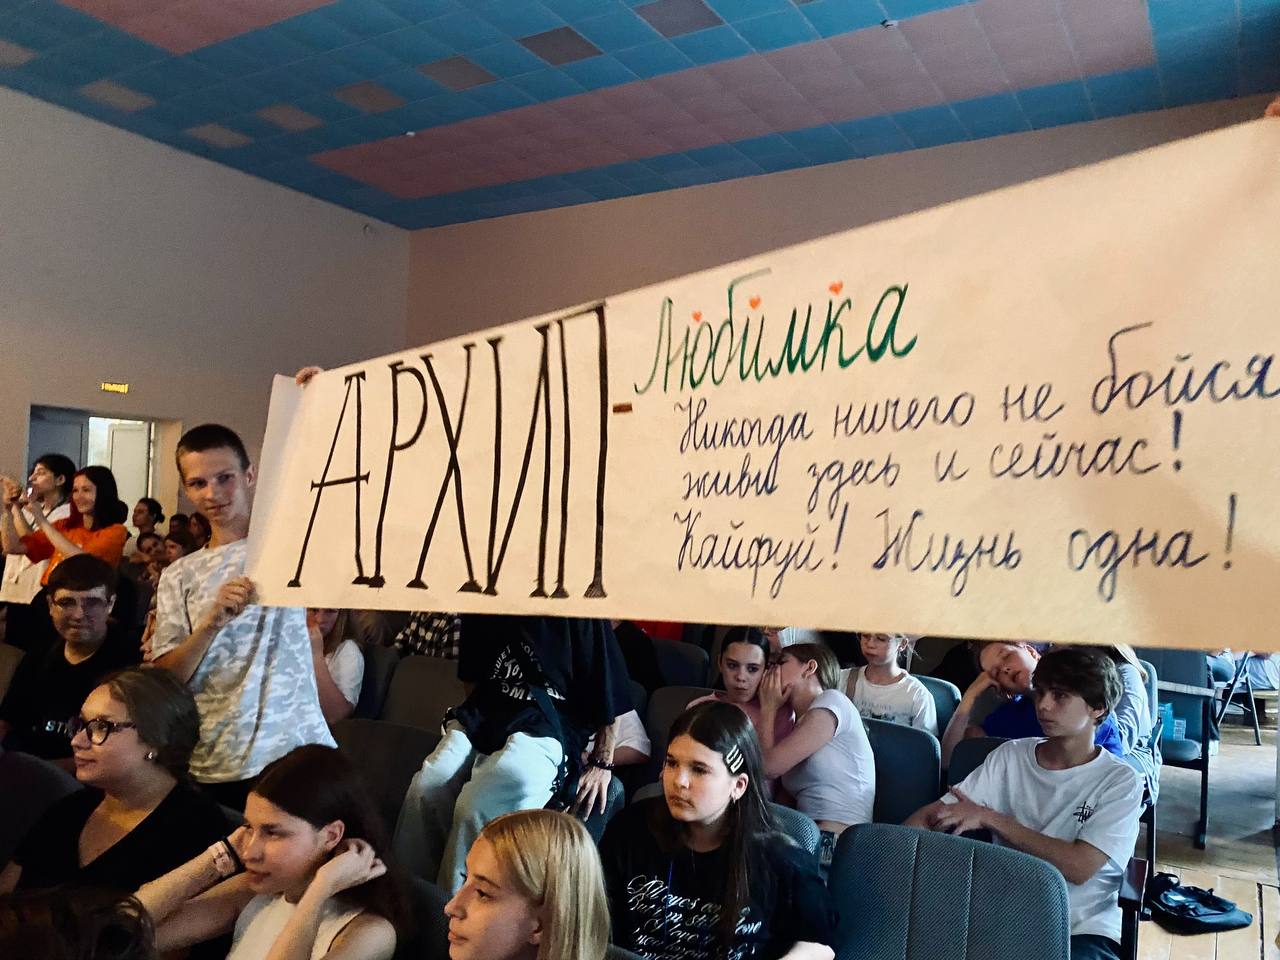 АРХИП-
Любимка
Никогда ничего не бойся
живи здесь и сейчас!
Кайфуй! Жизнь одна!
All eyes